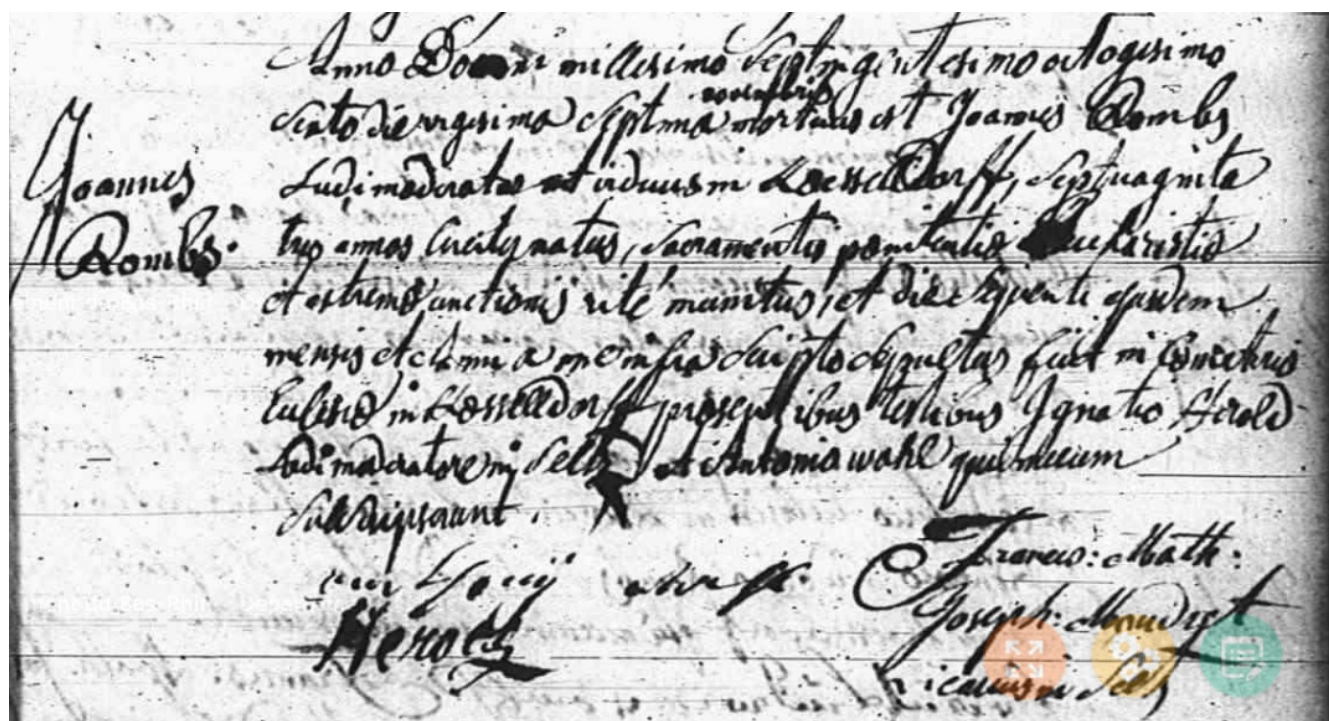 Anno Domini millesimo septingentesimo octogesimo
novembris
sexto die vigesima septima mortuus est Joannes Rombs
Joannes
ludimoderator et viduus in Kesselldorff, septuaginta
tres annos circiter natus, sacramentis pœnitentiæ Eucharistiæ
Rombs.
et extremæ unctionis rite munitus, et die sequenti ejusdem
mensis et anni a me infra scripto sepultus fuit in cœmeterio
Ecclesiæ in Kesselldorff præsentibus testibus Ignatio Herold
ludimoderatore in Seltz et Antonio wahl qui mecum
subscripserunt.
Francis: Math:
Joseph:
Herold
vicarius in Seltz